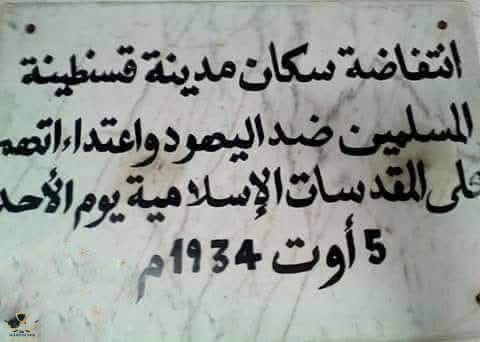 انتفاضة سكان مدينة قسنطينة
المسلمين ضد اليهود واعتداءاتهم
على المقدسات الإسلامية يوم الأحد
5 أوت 1934م